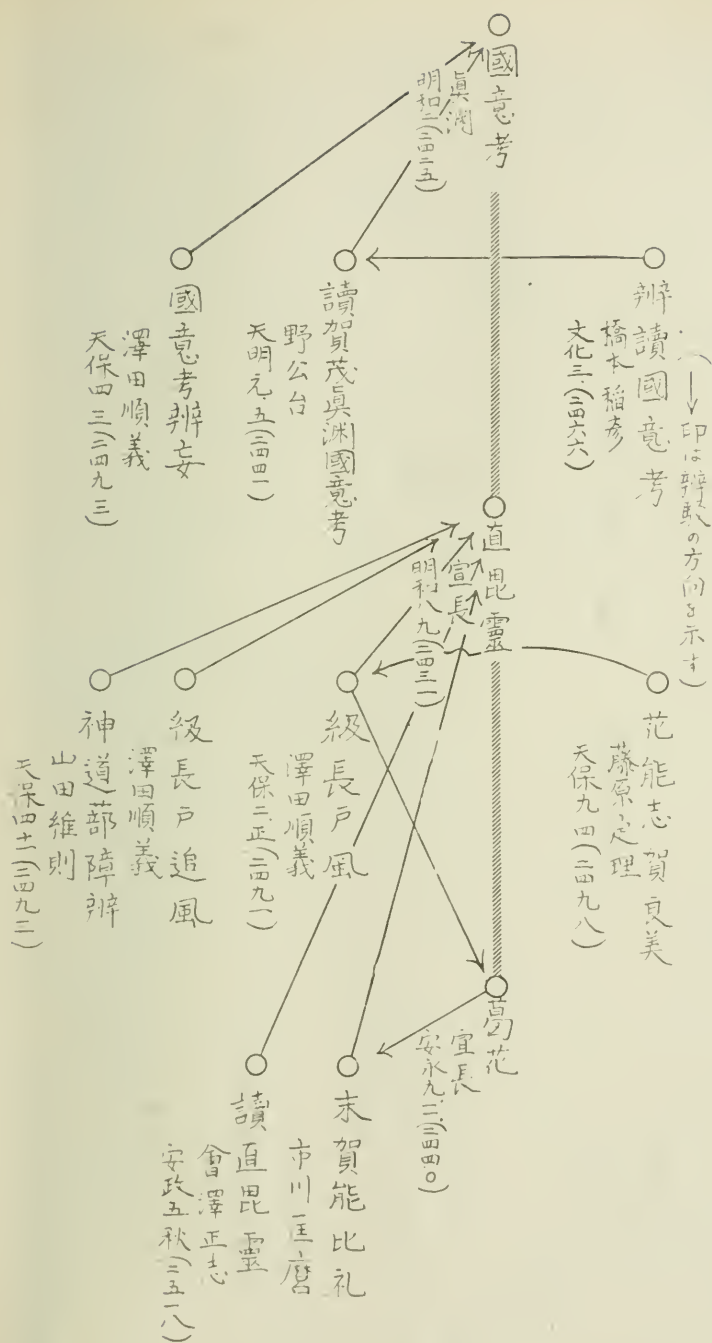 國意考
眞渕
明和二(二四二五)
辨讀國意考
橋本稲彦
文化三(二四六六)
(→印は辨駁の方向を示す)
讀賀茂眞渊國意考
野公台
天明元、五(二四四一)
國意考辨妄
澤田順義
天保四三(二四九三)
直毘靈
宣長
明和八九(二四三一)
花能志賀良美
藤原定理
天保九四(二四九八)
級長戸風
澤田順義
天保二、正(二四九一)
級長戸追風
澤田順義
神道蔀障辨
山田維則
天保四十二(二四九三)
葛花
宣長
安永九、二(二四四〇)
末賀能比礼
市川匡麿
讀直毘靈
會澤正志
安政五秋(二五一八)